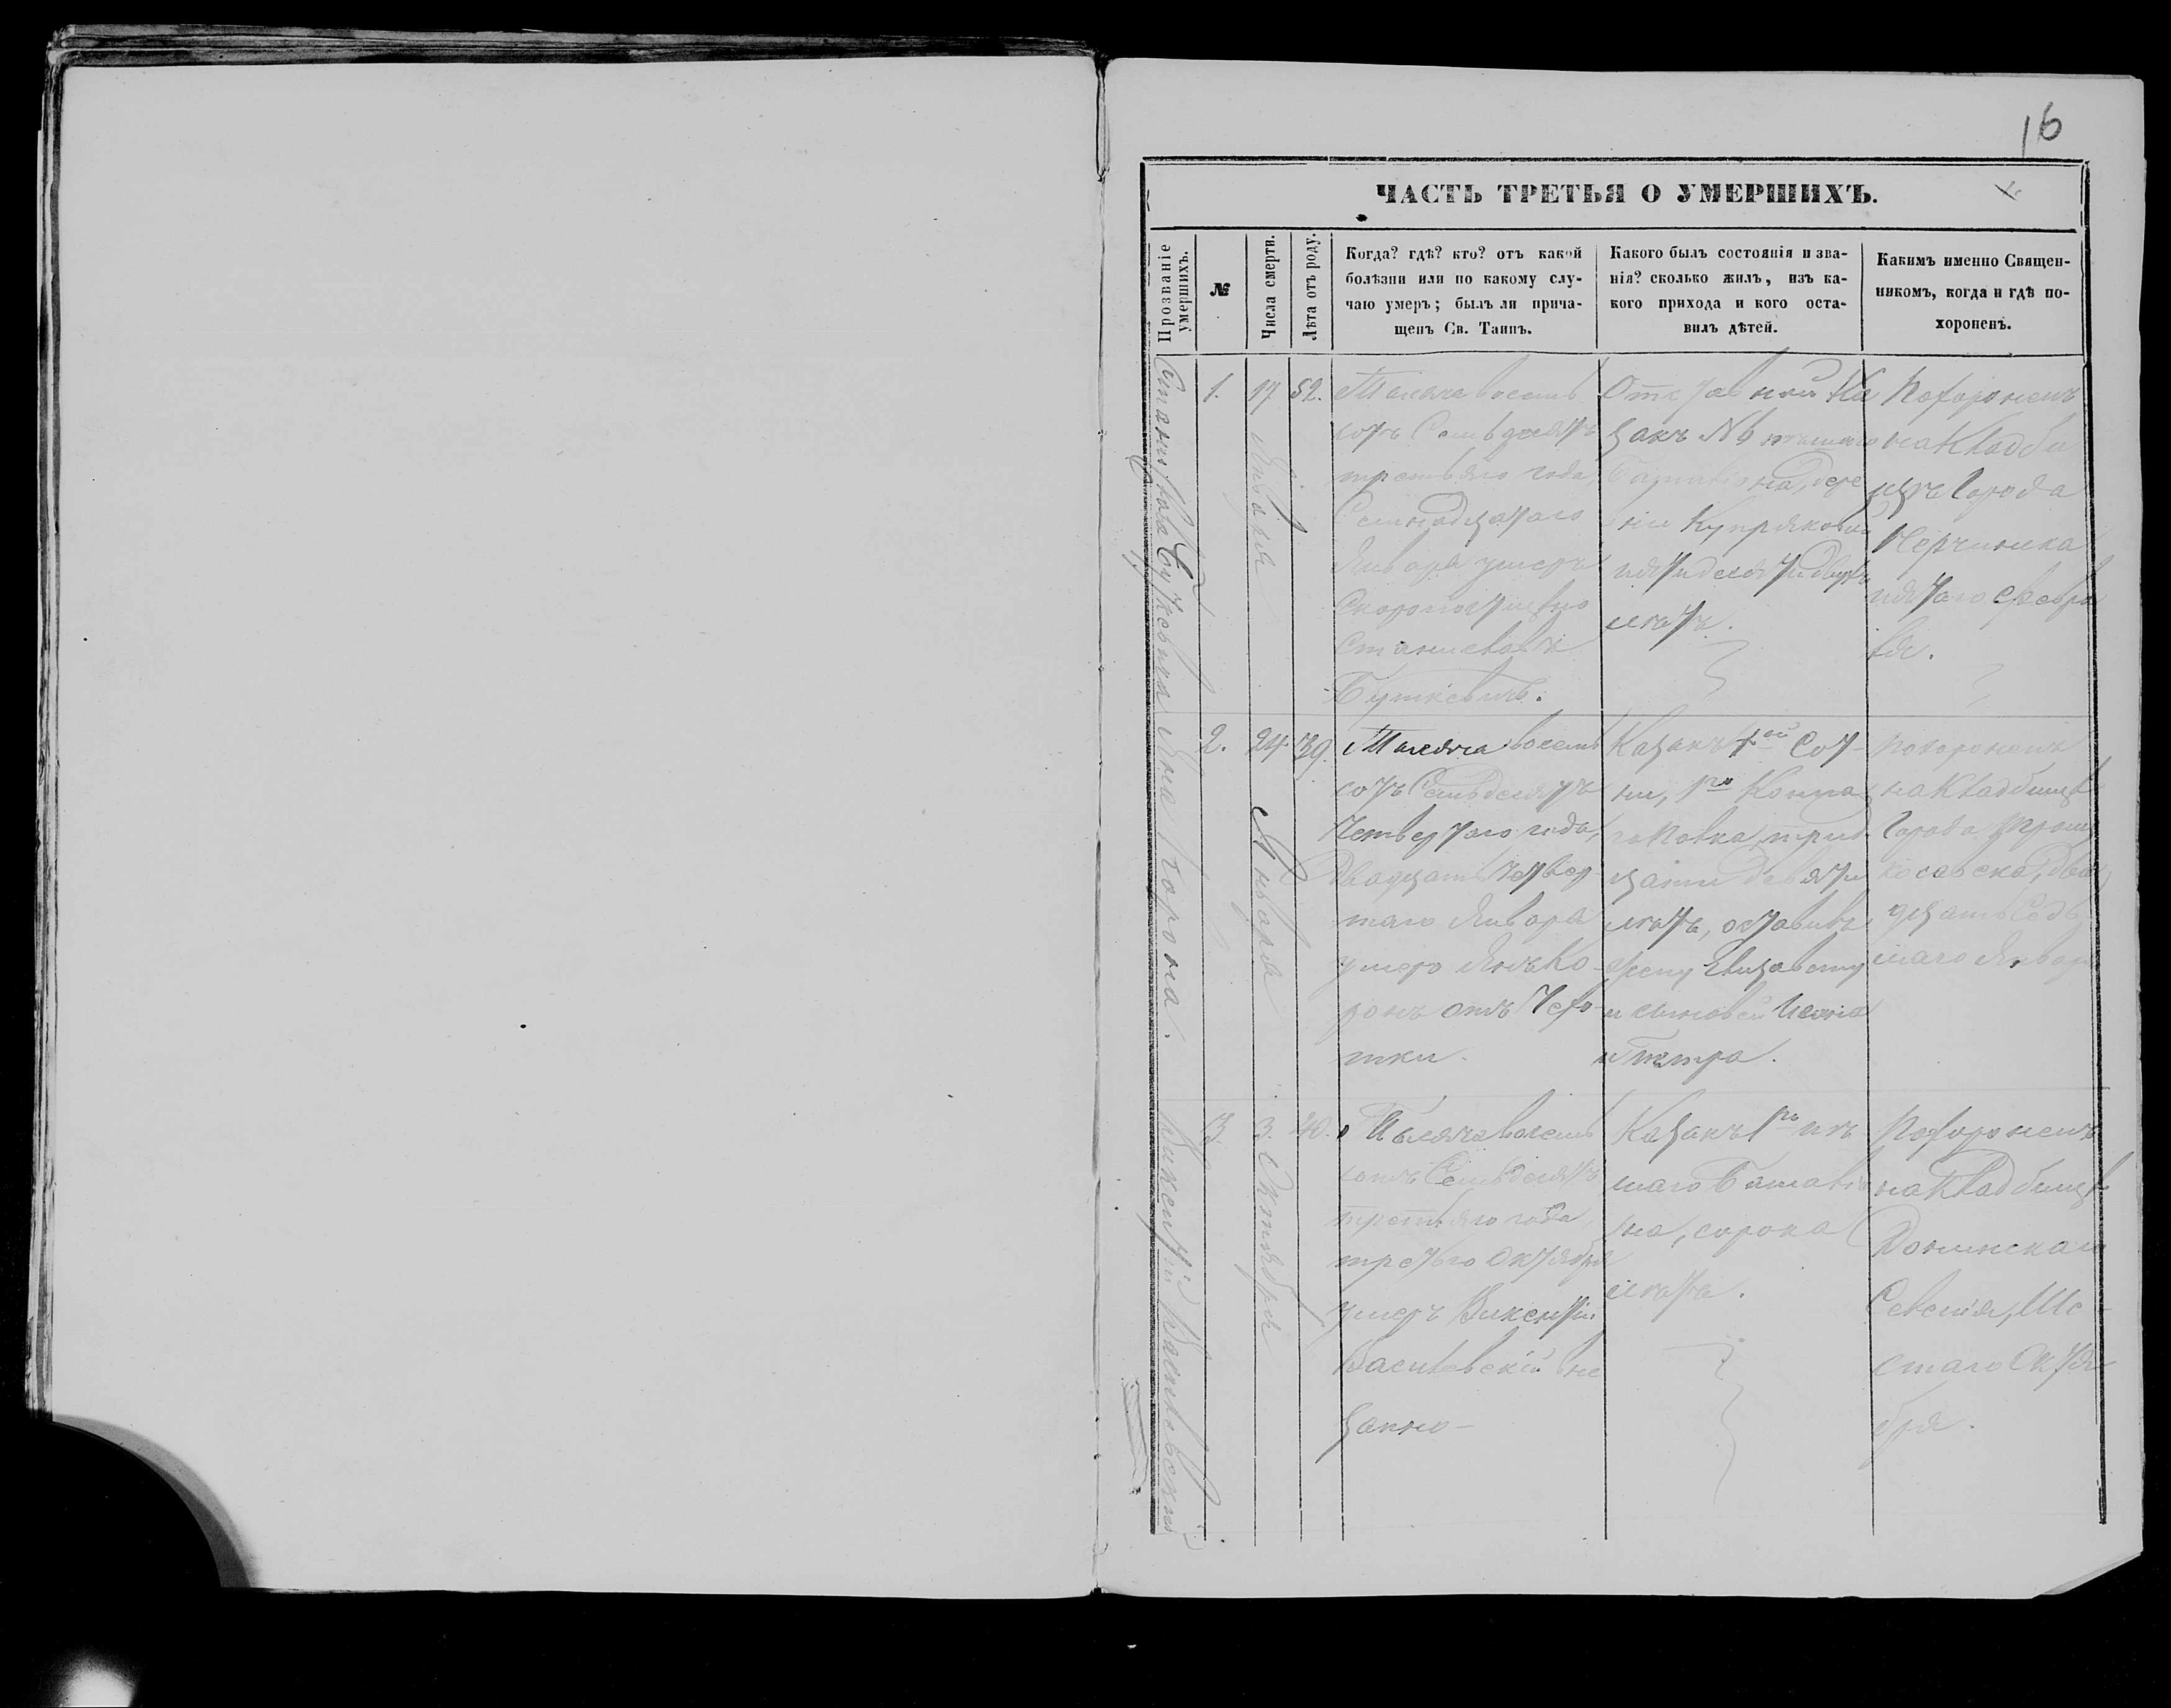 16
ЧАСТЬ ТРЕТЬЯ О УМЕРШИХЪ.
Прозваніе
умершихъ.
№
Числа смерти.
Лѣта отъ роду.
Когда? гдѣ? кто? отъ какой
болѣзни или по какому слу-
чаю умеръ; былъ ли прича-
щенъ Св. Таинъ.
Какого былъ состоянія и зва-
нія? сколько жилъ, изъ ка-
кого прихода и кого оста-
вилъ дѣтей.
Какимъ именно Священ-
никомъ, когда и гдѣ по-
хороненъ.
Станислава Буткевича
1.
17 Января
52.
Тысяча восемь
сотъ Семьдесятъ
третьяго года,
Семнадцатаго
Января умеръ
Скоропостижно
Станиславъ
Буткевичъ.
Отставной Ка
закъ №6 пѣшаго
Баталіона, дере
вни
пятидесяти двухъ
лѣтъ.
Похороненъ
на Кладби
щѣ Города
Нерчинска
пятаго Февра
ля.
Яна Корона.
2.
24 Января
39.
Тысяча восемь
сотъ Семьдесятъ
Четвертаго года,
Двадцать Четвер
таго Января
умеръ Янъ Ко-
ронъ отъ Чахо-
тки.
Казакъ 1ой Сот-
ни, 1го Конна
го Полка, трид
цати девяти
лѣтъ, оставивъ
Жену Елизавету
и сыновей
и Петра.
Похороненъ
на Кладбищѣ
Города Троиц
косавска, два
дцать Седь
маго Января
Викентій Василевскій
3.
3. Октября
40.
Тысяча восемь
сотъ Семьдесятъ
третьяго года,
третьго Октября
умеръ Викентій
Василевскій вне
запно-
Казакъ 1го пѣ
шаго Баталіо
на, сорока
лѣтъ.
Похороненъ
на Кладбищѣ
Донинскаго
Селенія, Ше-
стаго Октя
бря.